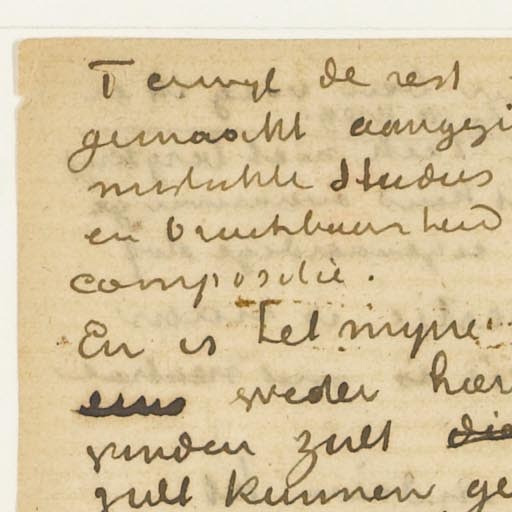 Terwyl de rest
gemaakt aangezi
mislukte studies
en bruikbaarheid
compositie.
En is het myne
eens weder hier
vinden zult die
zult kunnen ge